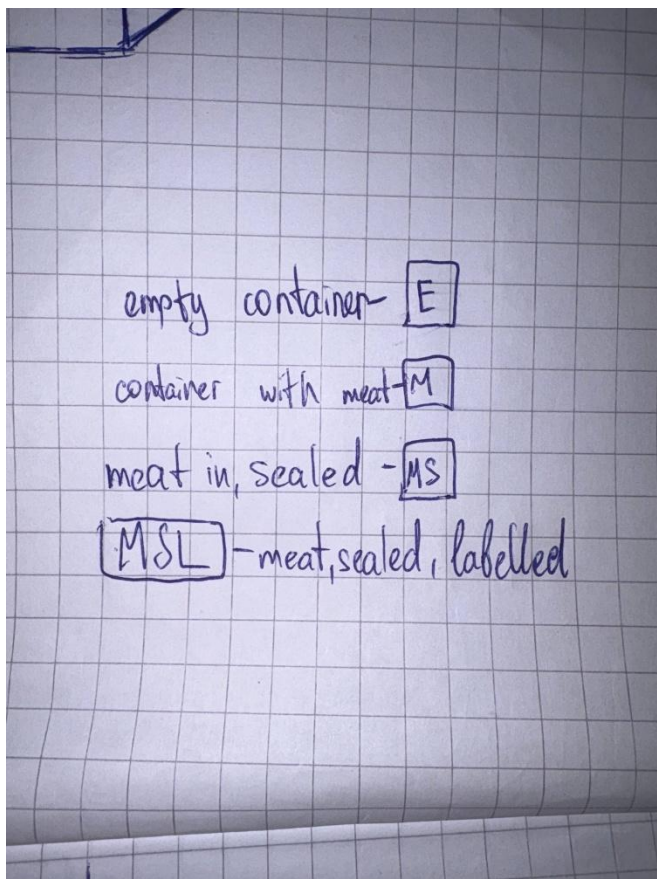 empty container- E
container with meat-M
meat in, sealed -MS
MSL -meat, sealed, labelled